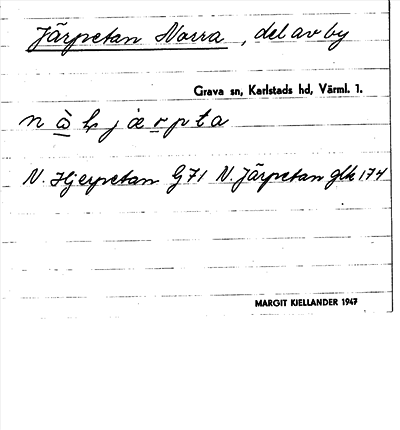 Järpetan Norra, del av by
Grava sn, Karlstads hd, Värml. l.
N. Hjerpetan G71 N. Järpetan glk 174
MARGIT KJELLANDER 1947